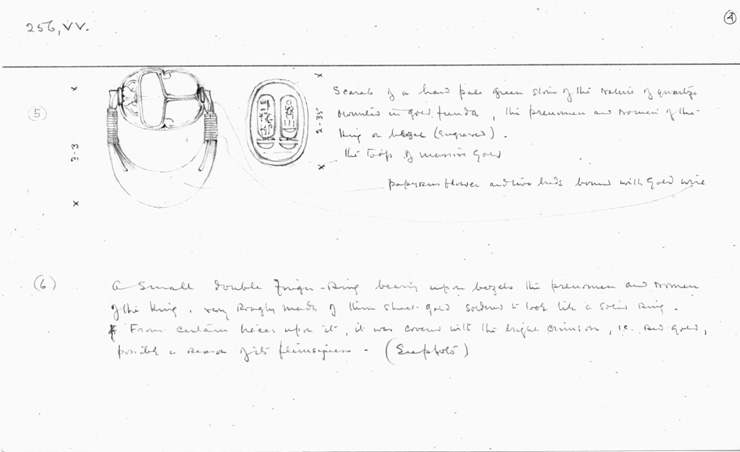 256, VV.
4
(5)
3-3
2-35
Scarab of a hard pale green stone of the nature of quartz
mounted in gold funda, the prenomen and nomen of the
King on bezel (engraved).
The hoop of massive gold
papyrus flower and two buds bound with gold wire
(6)
A small double finger-ring bearing upon bezels the prenomen and nomen
of the King. very roughly made of thin sheet-gold soldered to look like a solid ring.
From certain traces upon it, it was covered with the bright crimson, i.e. red gold,
possibly a reason of its flimsiness -